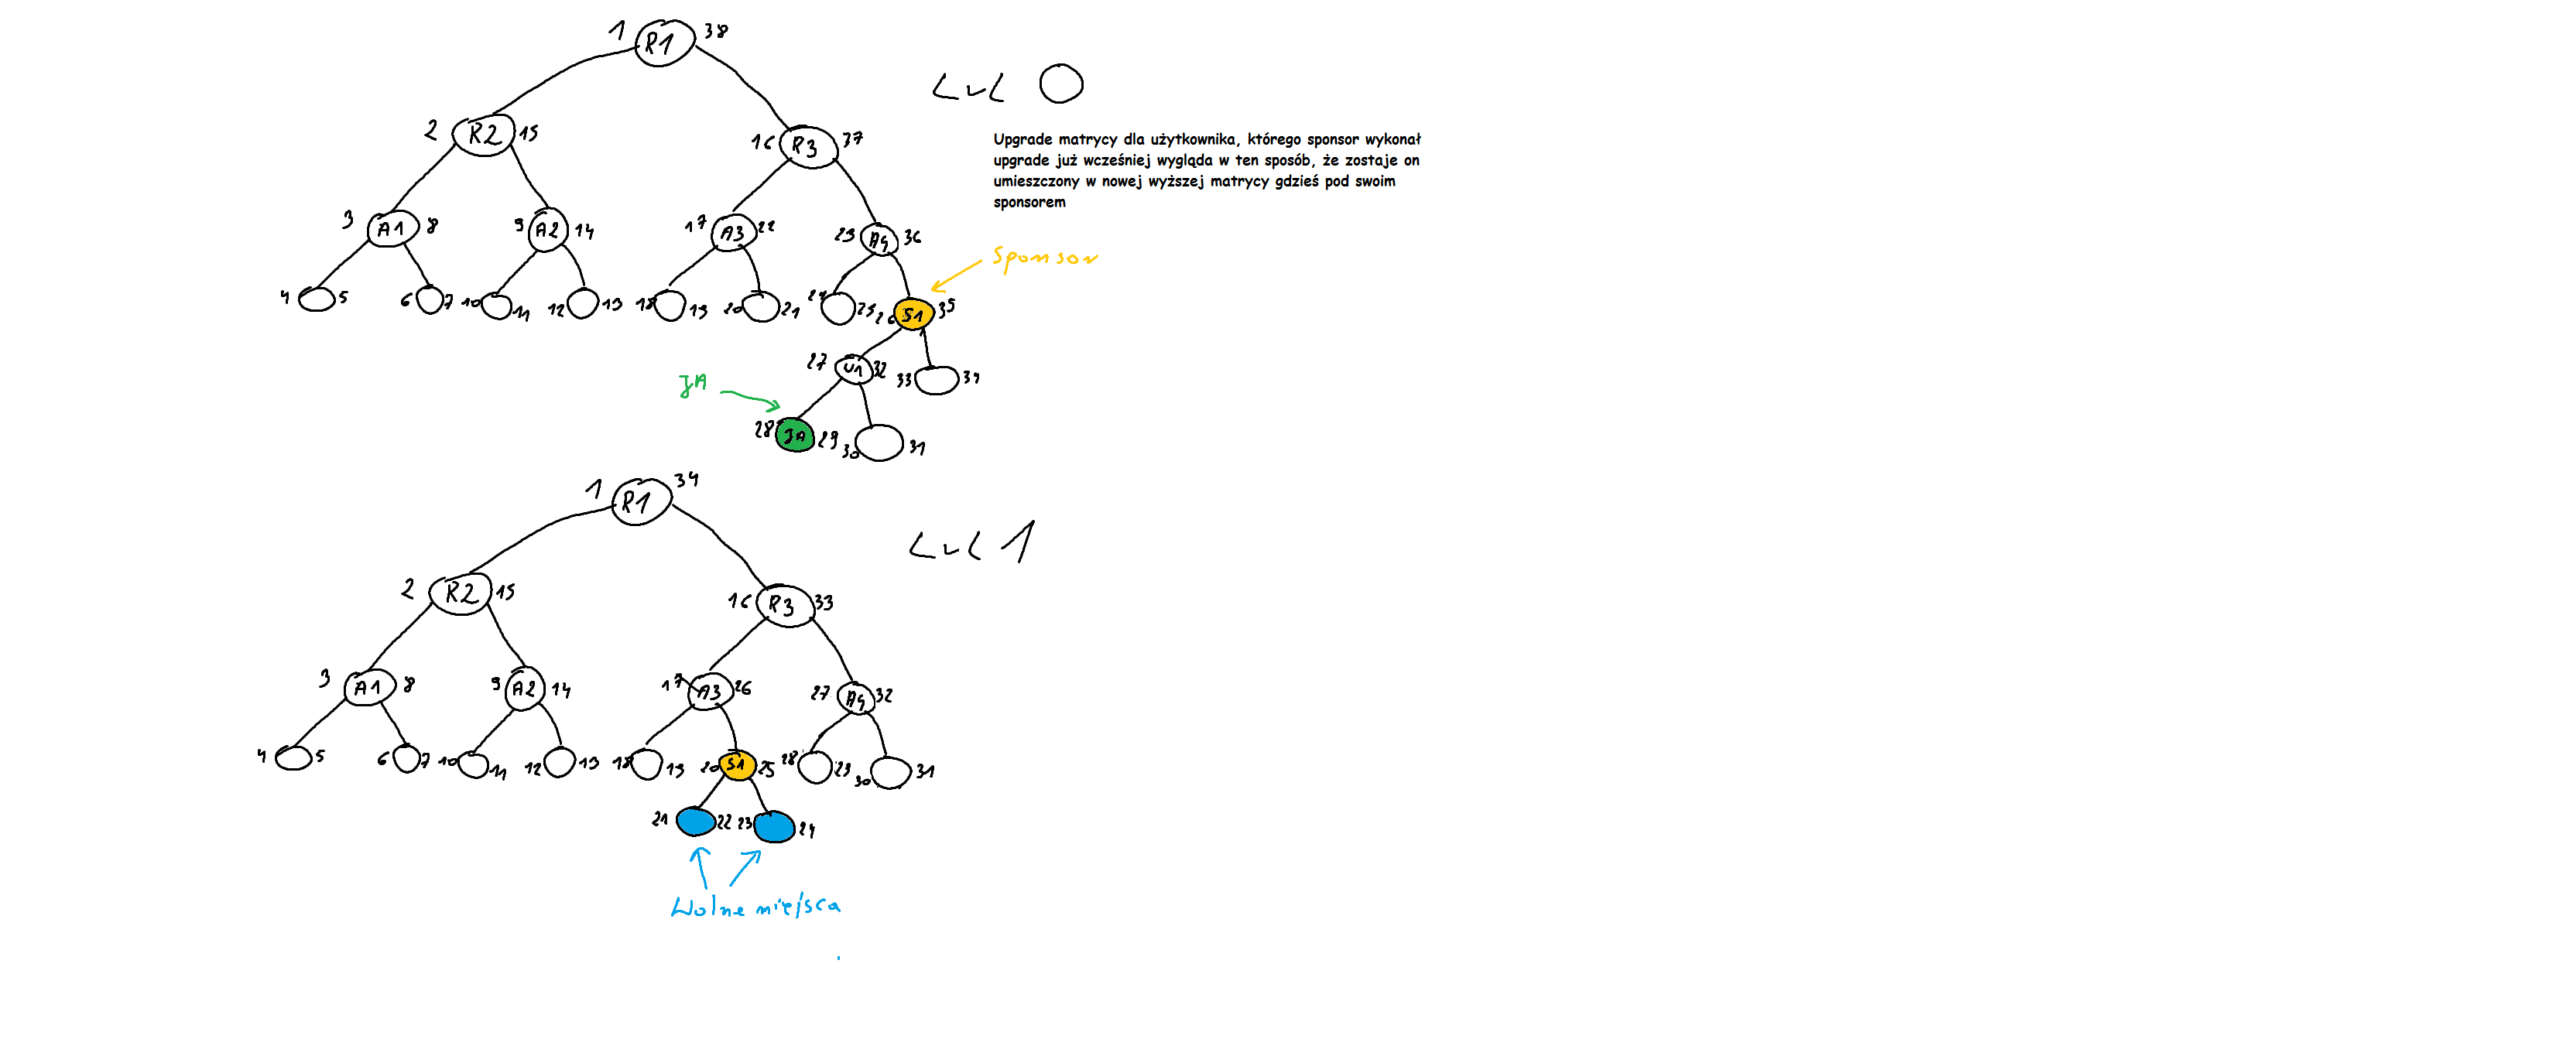 1 R1 38
LVL 0
2 R2 15 16 R3 37
Upgrade matrycy dla użytkownika, którego sponsor wykonał
upgrade już wcześniej wygląda w ten sposób, że zostaje on
umieszczony w nowej wyższej matrycy gdzieś pod swoim
sponsorem
3 A1 8 9 A2 14 17 A3 22 23 A4 36
Sponsor
4 5 6 7 10 11 12 13 18 19 20 21 24 25 26 S1 35
27 U1 32 33 34
JA
28 JA 29 30 31
1 R1 34
LVL 1
2 R2 15 16 R3 33
3 A1 8 9 A2 14 17 A3 26 27 A4 32
4 5 6 7 10 11 12 13 18 19 20 S1 25 28 29 30 31
21 22 23 24
Wolne miejsca